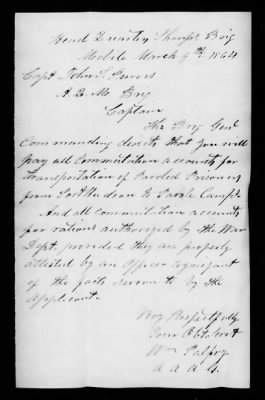 Head Quarters Sharp's Brig
Mobile March 9th 1864
Capt John S.
A. Q. M. Brig
Captain
The Brig Genl
Commanding directs that you will
pay all Commutation accounts for
transportation of Paroled Prisoners
from Port Hudson to Parole Camp.
And all commutation accounts
for rations authorized by the War
Dept. provided they are properly
attested by an Officer cognizant
of the facts sworn to by the
Applicant.
Very Respectfully
Your Obt Servt
Wm Palfrey
A. A. A. G.